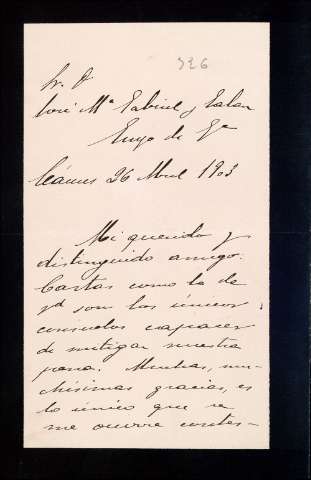 326
Sr. D.
José Mª Gabriel y Galan
Cáceres 26 Abril 1903
Mi querido y
distinguido amigo:
Cartas como la de
Vd son los únicos
consuelos capaces
de mitigar nuestra
pena. Muchas, mu-
chísimas gracias, es
lo único que se
me ocurre contes-